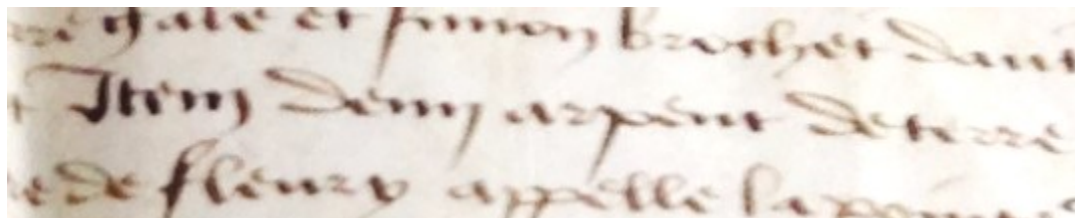 gale et simon brochet daut
Item demy arpent de terre
e de fleury appelle la